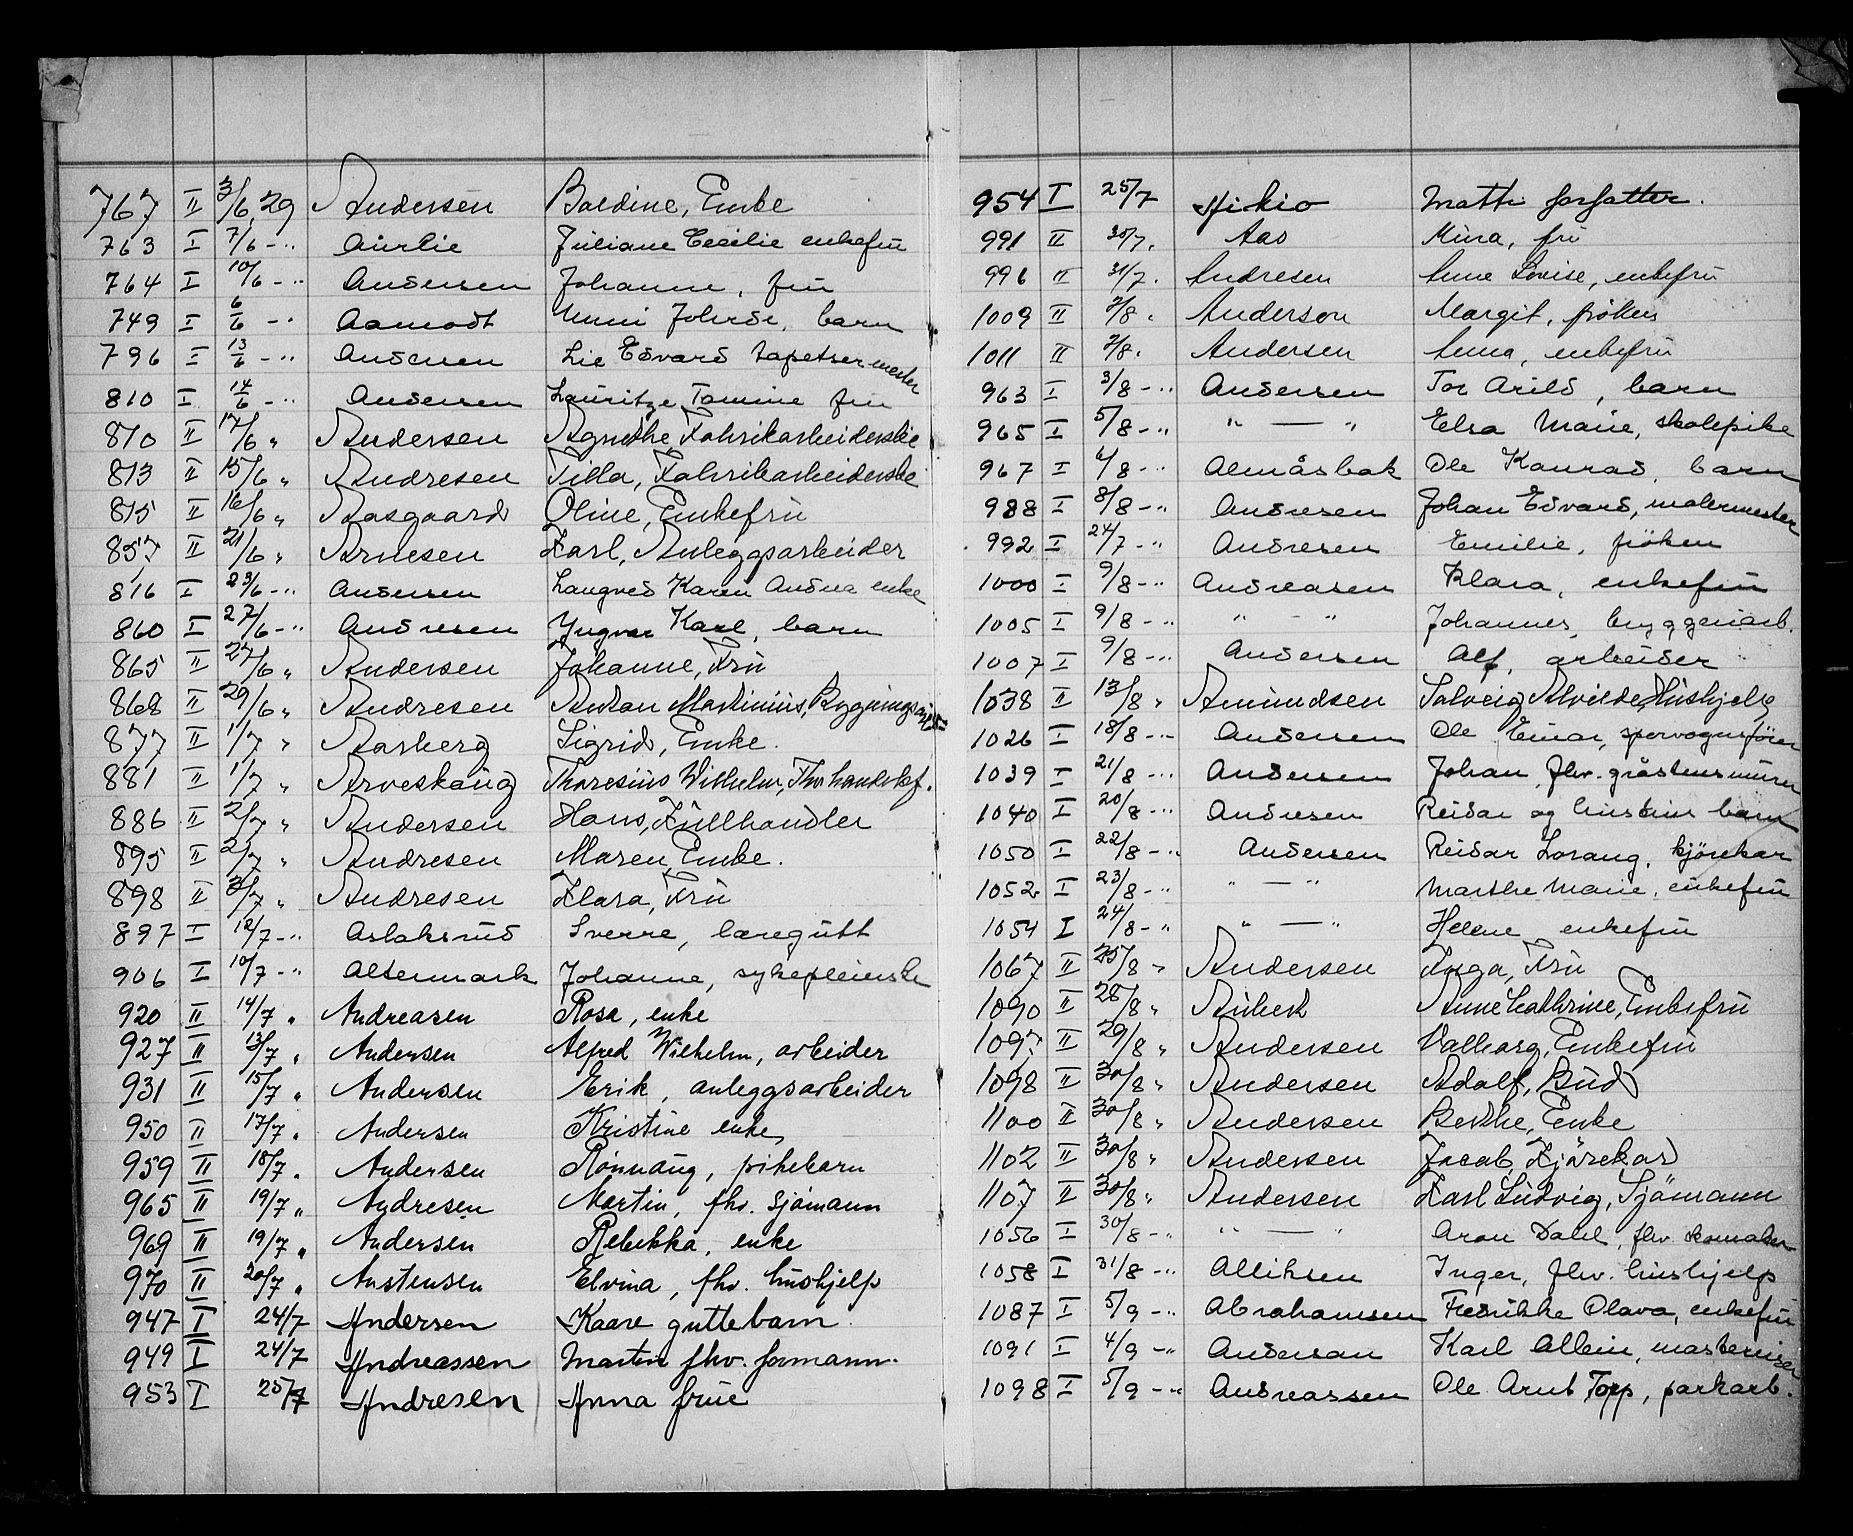 767 II 3/6 29 Andersen Baldine, Enke
763 I 7/6 -" Aurlie Juliane Cecilie enkefru
764 I 10/6 -" Andersen Johanne, fru
749 I 6/6 -" Aamodt Unni Johrde, barn
796 I 13/6 -" Andersen Lie Edvard tapetsermester
810 I 14/6 -" Andersen Lauritze Tomine fru
810 II 17/6 " Andersen Agnethe Fabrikarbeiderske
813 II 15/6 " Andresen Tilla, Fabrikarbeiderske
815 II 16/6 " Aasgaard Oline, Enkefru
857 II 21/6 " Arnesen Karl, Anleggsarbeider
816 I 23/6 -" Andersen Langved Karen Andrea enke
860 I 27/6 -" Andresen Yngvar Karl, barn
865 II 27/6 " Andersen Johanne, Fru
868 II 29/6 " Andresen Anton Martinius, Bygnings
877 II 1/7 " Aasberg Sigrid, Enke.
881 II 1/7 " Arveskaug Thoresius Wilhelm, Fhv. handelsf.
886 II 2/7 " Andersen Hans, Kullhandler
895 II 2/7 " Andresen Maren, Enke.
898 II 3/7 " Andresen Klara, Fru
897 I 12/7 -" Aslaksrud Sverre, læregutt
906 I 10/7 -" Altermark Johanne, sykepleierske
920 II 14/7 " Andreasen Rosa, enke
927 II 13/7 " Andersen Alfred Wilhelm, arbeider
931 II 15/7 " Andersen Erik, anleggsarbeider
950 II 17/7 " Andersen Kristine enke,
959 II 18/7 " Andersen Rønnaug, pikebarn
965 II 19/7 " Andresen Martin, fhv. sjømann
969 II 19/7 " Andersen Rebekka, enke
970 II 20/7 " Austensen Elvina, fhv. hushjelp
947 I 24/7 Andersen Kaare guttebarn
949 I 24/7 Andreassen Martin fhv. formann.
953 I 25/7 Andresen Anna frue
954 I 25/7 Aikio Matti forfatter.
991 II 30/7. Aas Mina, fru
996 II 31/7. Andresen Anne Lovise, enkefru
1009 II 7/8. Anderson Margit, frøken
1011 II 7/8. Andersen Anna, enkefru
963 I 3/8 -" Andersen Tor Arild, barn
965 I 5/8 -" " — " Elsa Marie, skolepike
967 I 6/8 -" Almåsbak Ole Konrad, barn
988 I 8/8 -" Andresen Johan Edvard, malermester
992 I 24/7 -" Andresen Emilie, frøken
1000 I 9/8 -" Andreasen Klara, enkefru
1005 I 9/8 -" " - " Johannes, bryggeriarb.
1007 I 9/8 -" Andersen Alf, arbeider
1038 II 13/8 " Amundsen Solveig Alvilde, Hushjelp
1026 I 18/8 -" Andersen Ole Einar, sporvognsfører
1039 I 21/8 -" Andersen Johan, fhv. gråstensmurer
1040 I 20/8 -" Andresen Reidar og hustrus barn
1050 I 22/8 -" Andersen Reidar Lorang, kjørekar
1052 I 23/8 -" " — " Marthe Marie, enkefru
1054 I 24/8 -" " — " Helene enkefru
1067 II 25/8 " Andersen Inga, Fru
1090 II 28/8 " Aubert Anne Cathrine, Enkefru
1097 II 29/8 " Andersen Valborg, Enkefru
1098 II 30/8 " Andersen Adolf, Bud
1100 II 30/8 " Andersen Berthe, Enke
1102 II 30/8 " Andersen Jacob, Kjørekar
1107 II 30/8 " Andersen Karl Ludvig, Sjømann
1056 I 30/8 -" " — " Aron Dahl, fhv. skomaker
1058 I 31/8 -" Alliksen Inger, fhv. hushjelp
1087 I 5/9 -" Abrahamsen Fredrikke Olava, enkefru
1091 I 4/9 -" Anderson Karl Albin,
1098 I 5/9 -" Andreassen Ole Arnt Topp, parkarb.